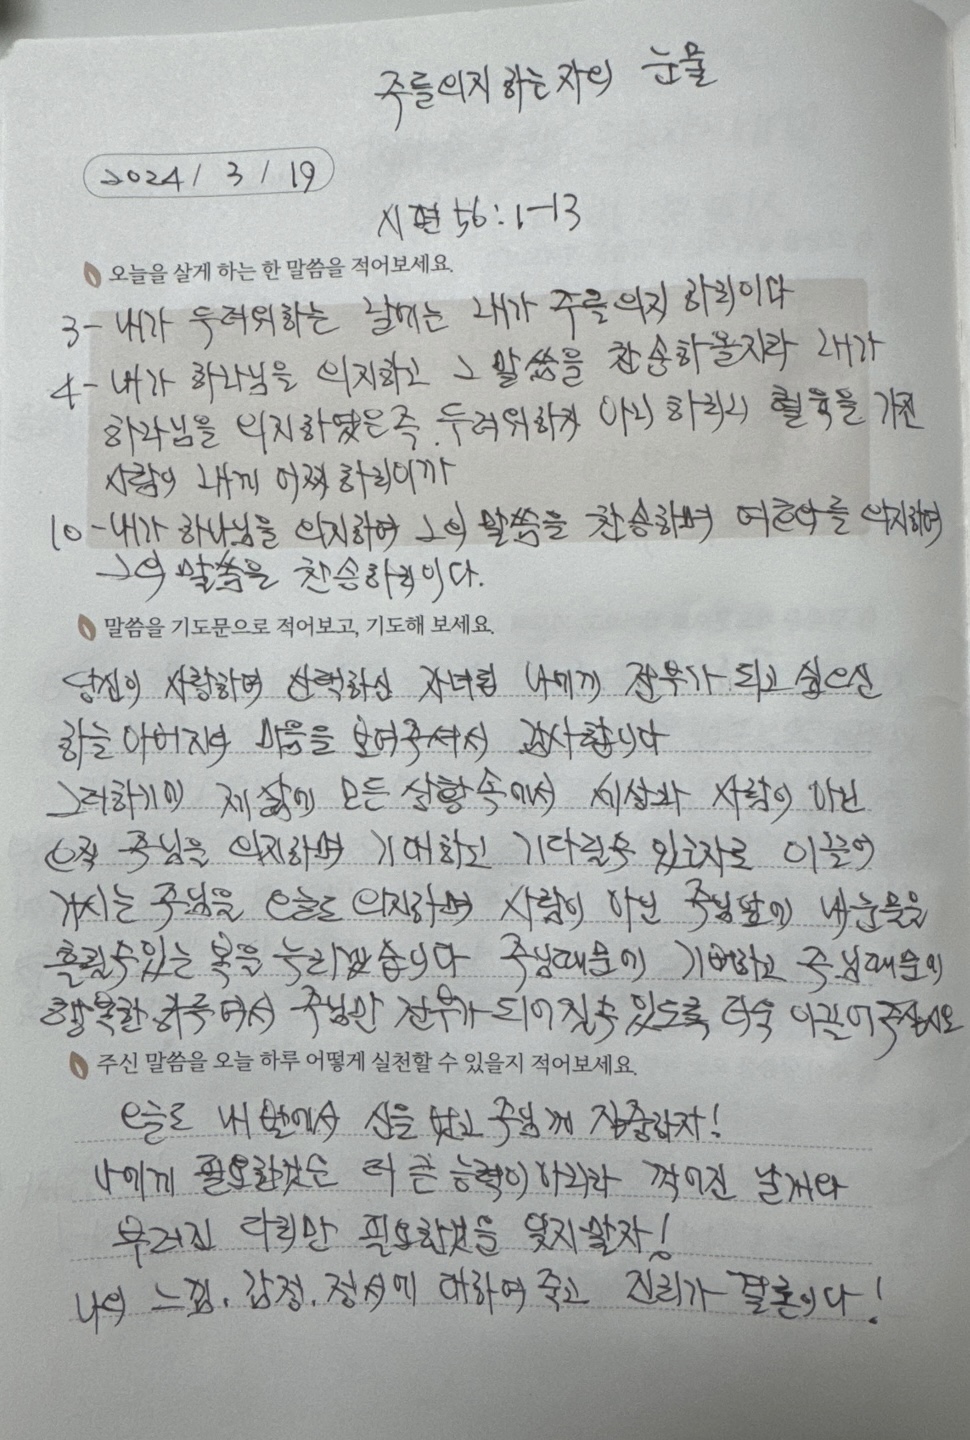 주를의지 하는자의 눈물
2024 / 3 / 19
시편 56:1-13
오늘을 살게 하는 한 말씀을 적어보세요.
3- 내가 두려워하는 날에는 내가 주를의지 하리이다
4- 내가 하나님을 의지하고 그 말씀을 찬송하올지라 내가
하나님을 의지하였은즉 두려워하지 아니 하리니 혈육을 가진
사람이 내게 어찌 하리이까
10- 내가 하나님을 의지하여 그의 말씀을 찬송하며 여호와를 의지하여
그의 말씀을 찬송하리이다.
말씀을 기도문으로 적어보고, 기도해 보세요.
당신이 사랑하며 선택하신 자녀된 나에게 전부가 되고 싶으신
하늘 아버지의 마음을 보여주셔서 감사합니다
그러하기에 제 삶에 모든 상황 속에서 세상과 사람이 아닌
오직 주님을 의지하며 기대하고 기다릴수 있는자로 이끌어
가시는 주님을 오늘도 의지하며 사람이 아닌 주님앞에 내눈물을
흘릴수있는 복을 누리겠습니다 주님때문에 기뻐하고 주님때문에
행복한 하루여서 주님만 전부가 되어질수 있도록 더욱 이끌어주십시오
주신 말씀을 오늘 하루 어떻게 실천할 수 있을지 적어보세요.
오늘도 내 발에서 신을 벗고 주님께 집중하자!
나에게 필요한것은 더 큰 능력이 아니라 꺾어진 날개와
부러진 다리만 필요한것을 잊지말자!
나의 느낌, 감정, 정서에 대하여 죽고 진리가 결론이다!